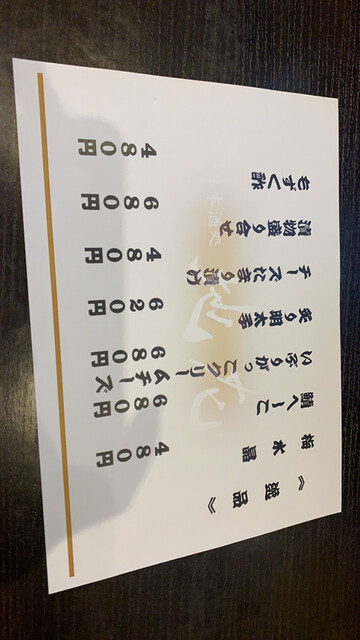 《逸品》
梅水晶 480円
鯖へしこ 680円
いぶりがっこクリームチーズ 680円
炙り明太子 620円
チーズたまり漬け 480円
漬物盛り合せ 680円
もずく酢 480円